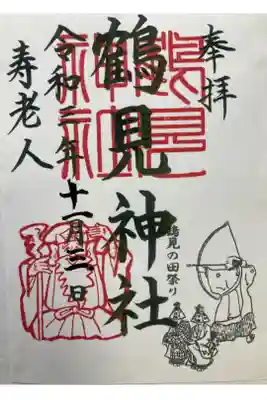 奉拝
鶴見神社
令和二年十一月三日
寿老人
鶴見の田祭り